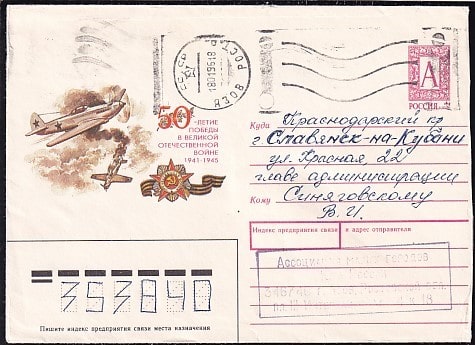 50
-ЛЕТИЕ
ПОБЕДЫ
В ВЕЛИКОЙ
ОТЕЧЕСТВЕННОЙ
ВОЙНЕ
1941-1945
А
РОССИЯ
Куда Краснодарский кр
г Славянск-на-Кубани
ул. Красная 22
главе администрации
Кому Синяговскому
В. И.
Индекс предприятия связи и адрес отправителя
Ассоциация
353840
Пишите индекс предприятия связи места назначения